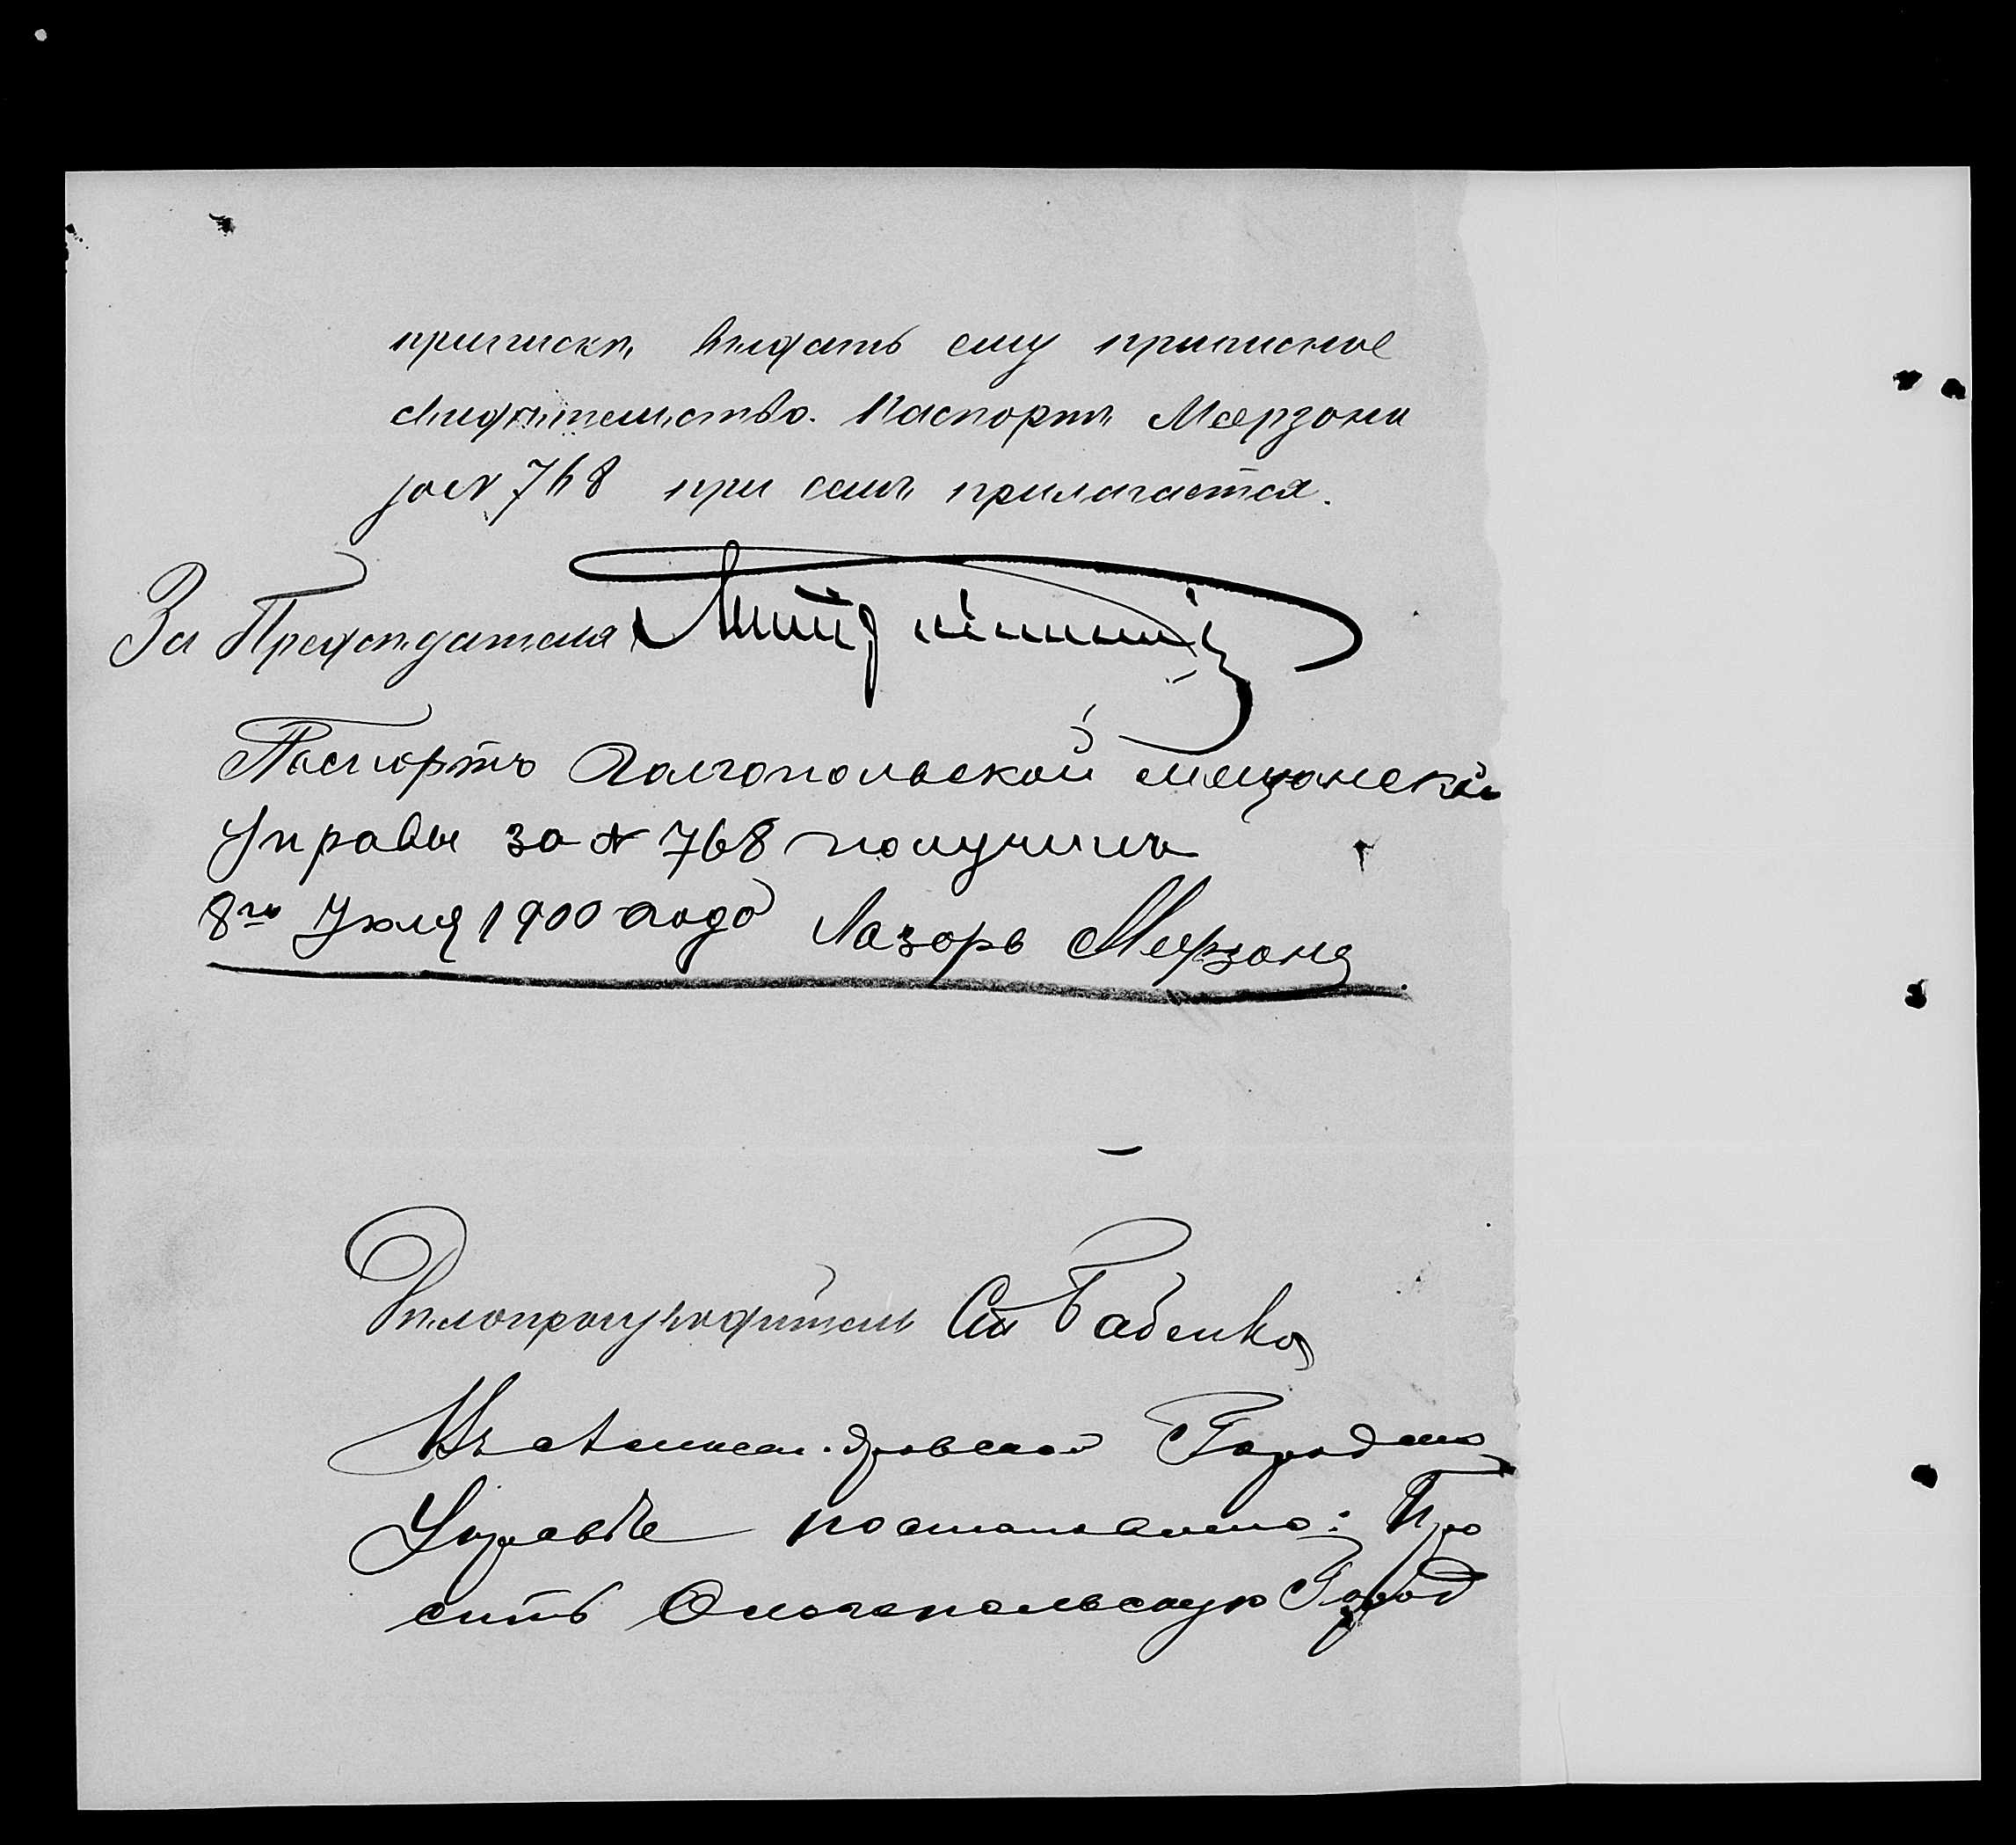 припискѣ выдать ему приписное
свидѣтельство. Паспортъ Меерзона
за № 768 при семъ прилагается.
За Предсѣдателя
Паспортъ Олгопольской мещанской
Управы за № 768 получилъ
8го Июля 1900 года Лазорь Меерзонъ
Дѣлопроизводитель Ст Бабенко
Въ Александровской Городской
Управѣ постановлено: Про
сить Ольгопольскую Город